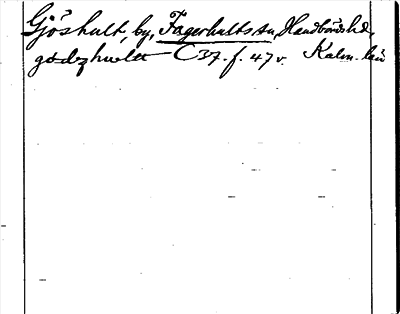 Gjöshult, by, Fagerhults sn, Handbörds hd,
gødzhwlta C 37. f. 47 v. Kalm. län